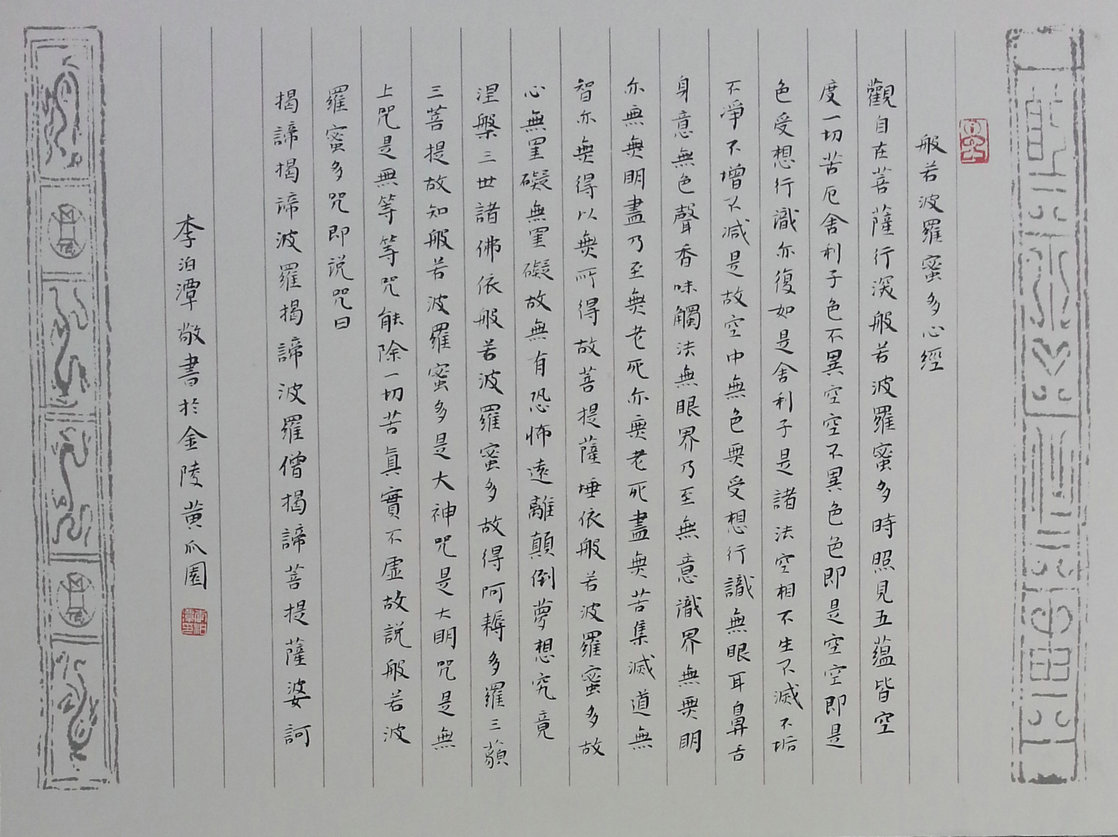 般若波羅蜜多心經
觀自在菩薩行深般若波羅蜜多時照見五蘊皆空
度一切苦厄舍利子色不異空空不異色色即是空空即是
色受想行識亦復如是舍利子是諸法空相不生不滅不垢
不淨不增不減是故空中無色無受想行識無眼耳鼻舌
身意無色聲香味觸法無眼界乃至無意識界無無明
亦無無明盡乃至無老死亦無老死盡無苦集滅道無
智亦無得以無所得故菩提薩埵依般若波羅蜜多故
心無罣礙無罣礙故無有恐怖遠離顛倒夢想究竟
涅槃三世諸佛依般若波羅蜜多故得阿耨多羅三藐
三菩提故知般若波羅蜜多是大神咒是大明咒是無
上咒是無等等咒能除一切苦真實不虛故說般若波
羅蜜多咒即說咒曰
揭諦揭諦波羅揭諦波羅僧揭諦菩提薩婆訶
李泊潭敬書於金陵黄瓜園